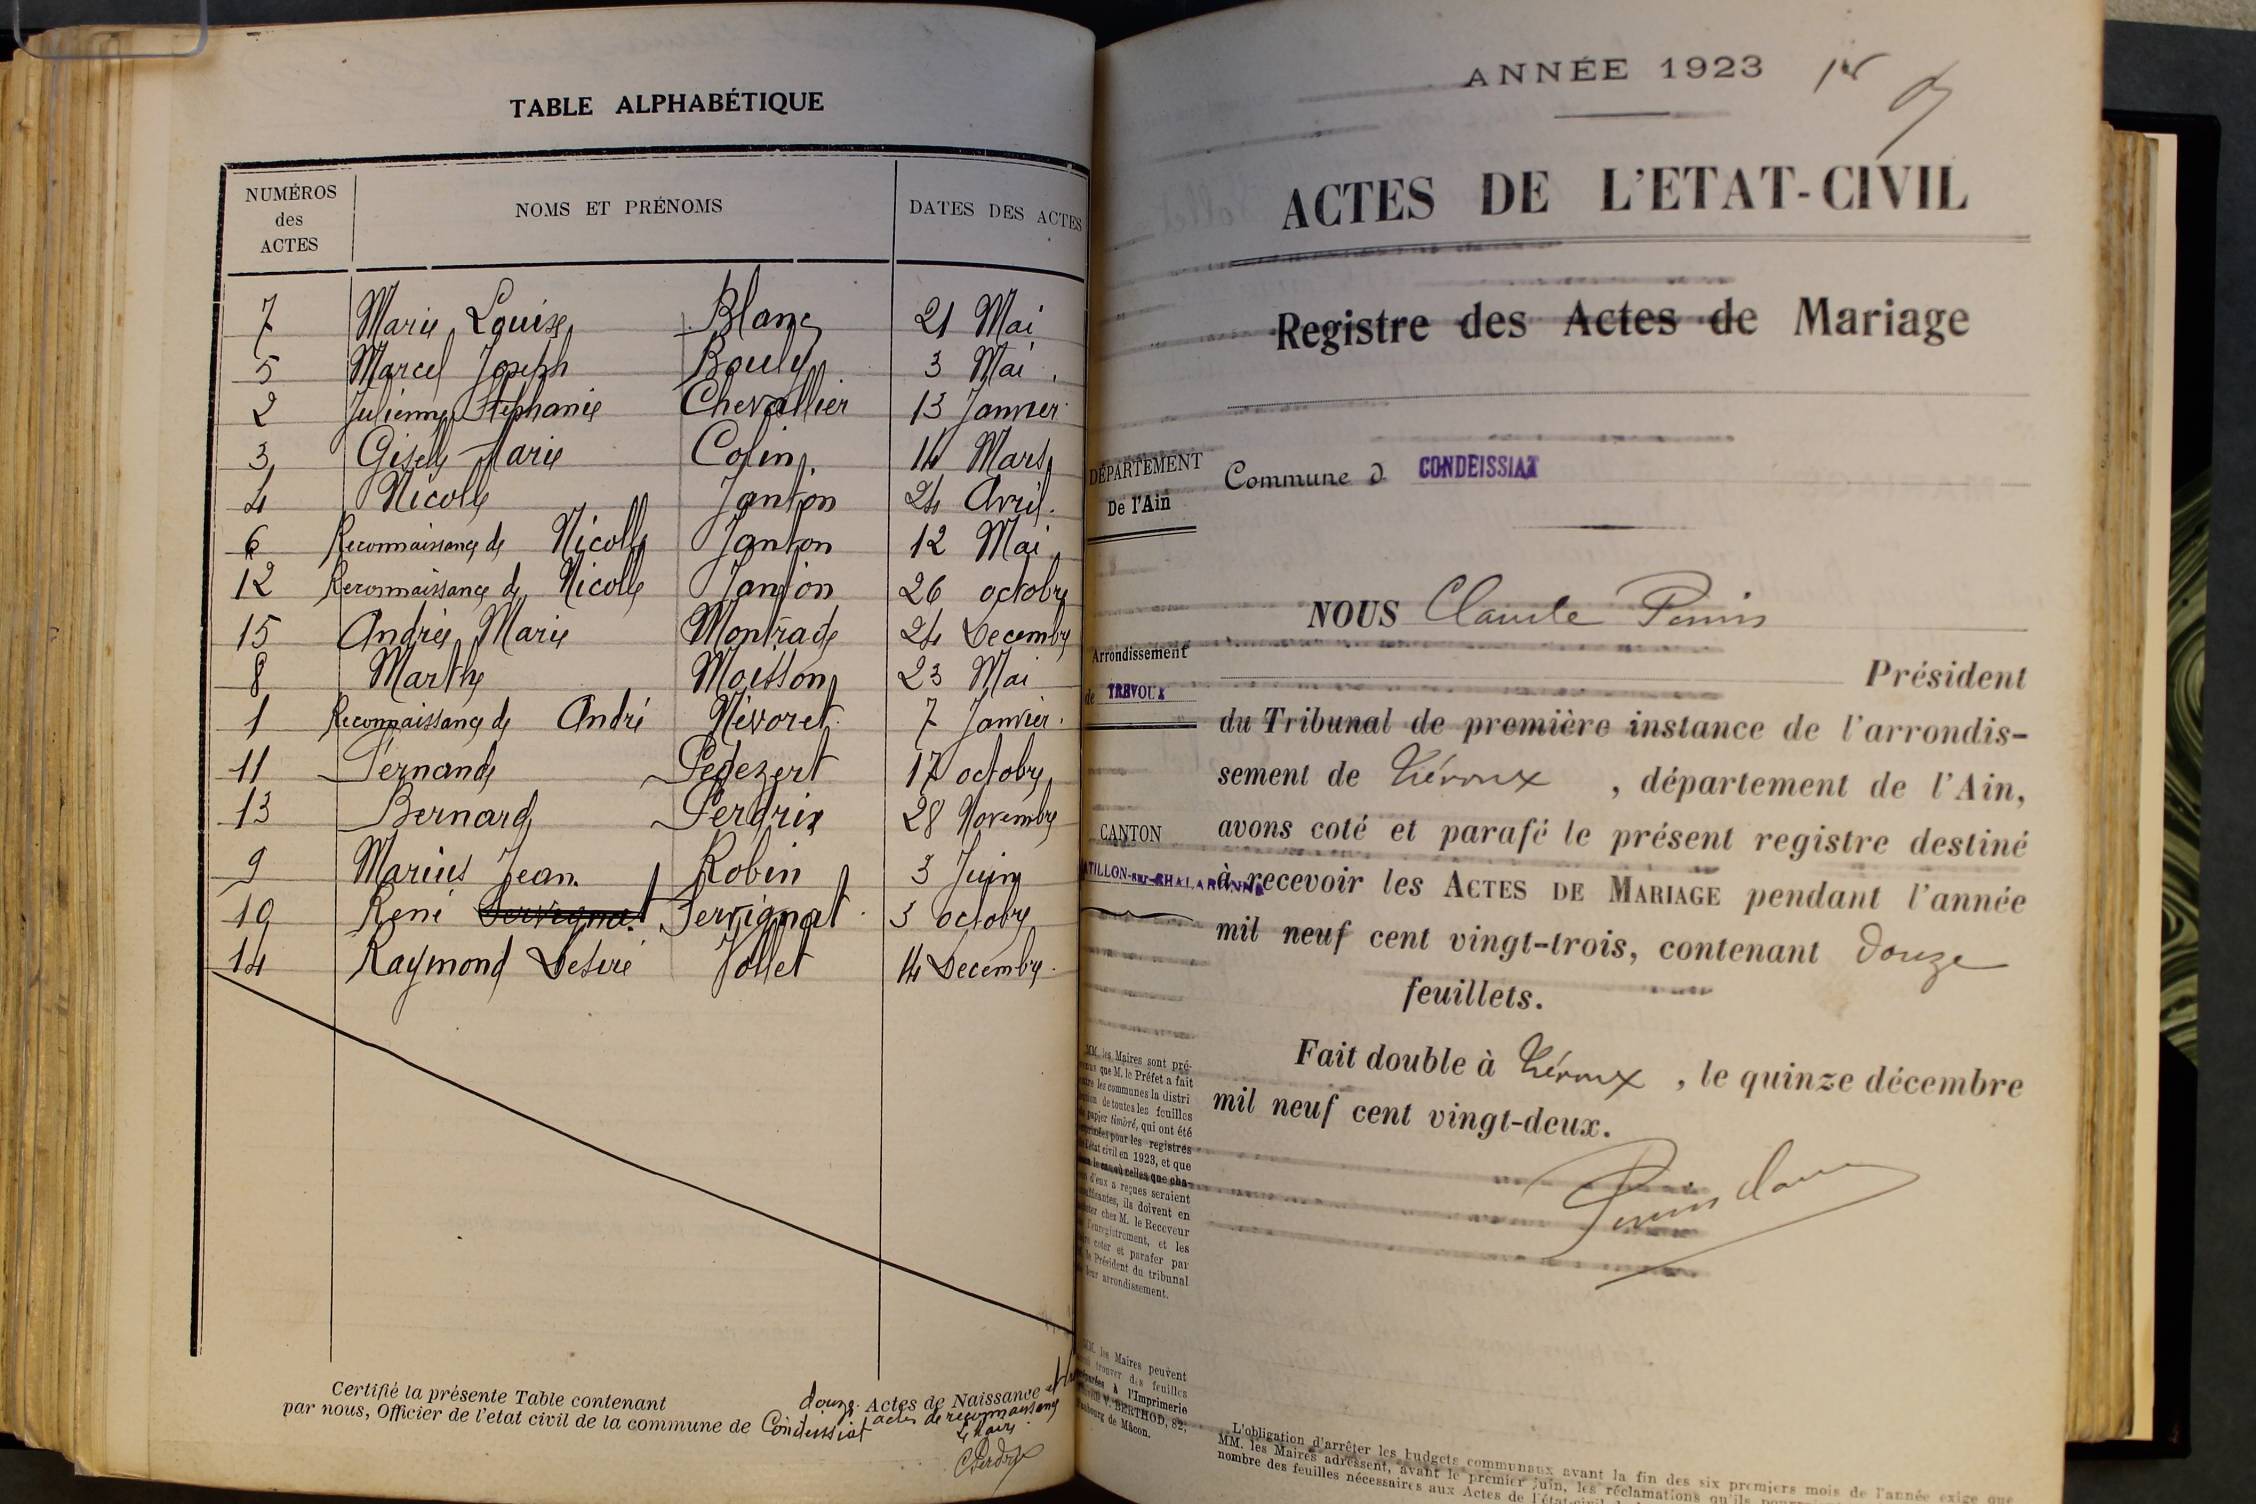 TABLE ALPHABÉTIQUE
NUMÉROS des ACTES NOMS ET PRÉNOMS DATES DES ACTES
7 Marie Louise Blanc 21 Mai
5 Marcel Joseph Bouly 3 Mai
2 Julienne Stéphanie Chevallier 13 Janvier
3 Gisèle Marie Colin 14 Mars
4 Nicolle Janton 24 Avril
6 Reconnaissance de Nicolle Janton 12 Mai
12 Reconnaissance de Nicolle Janton 26 octobre
15 Andrée Marie Montrade 24 Decembre
8 Marthe Moisson 23 Mai
1 Reconnaissance de André Névoret 7 Janvier
11 Fernande Pedezert 17 octobre
13 Bernard Perdrix 28 Novembre
9 Marius Jean Robin 3 Juin
10 René Servignat Servignat 3 octobre
14 Raymond Desiré Jollet 14 Decembre
Certifié la présente Table contenant douze Actes de Naissance et
par nous, Officier de l'etat civil de la commune de Condeissiat actes de reconnaissance
Le Maire
ANNÉE 1923
ACTES DE L'ETAT-CIVIL
Registre des Actes de Mariage
DÉPARTEMENT
De l'Ain
Commune d CONDEISSIAT
Arrondissement
de TREVOUX
CANTON
ATILLON-sur-CHALARONNE
NOUS Claude Perrin
Président
du Tribunal de première instance de l'arrondis-
sement de Trévoux , département de l'Ain,
avons coté et parafé le présent registre destiné
à recevoir les ACTES DE MARIAGE pendant l'année
mil neuf cent vingt-trois, contenant douze
feuillets.
Fait double à Trévoux , le quinze décembre
mil neuf cent vingt-deux.
MM. les Maires sont pré-
que M. le Préfet a fait
les communes la distri
de toutes les feuilles
papier timbré, qui ont été
pour les registres
l'état civil en 1923, et que
le cas où celles que cha-
d'eux a reçues seraient
ils doivent en
chez M. le Receveur
l'enregistrement, et les
coter et parafer par
le Président du tribunal
leur arrondissement.
MM. les Maires peuvent
trouver des feuilles
à l'Imprimerie
V. BERTHOD, 82,
de Mâcon.
L'obligation d'arrêter les budgets communaux avant la fin des six premiers mois de l'année exige que
MM. les Maires adressent, avant le premier juin, les réclamations qu'ils
nombre des feuilles nécessaires aux Actes de l'état-civil